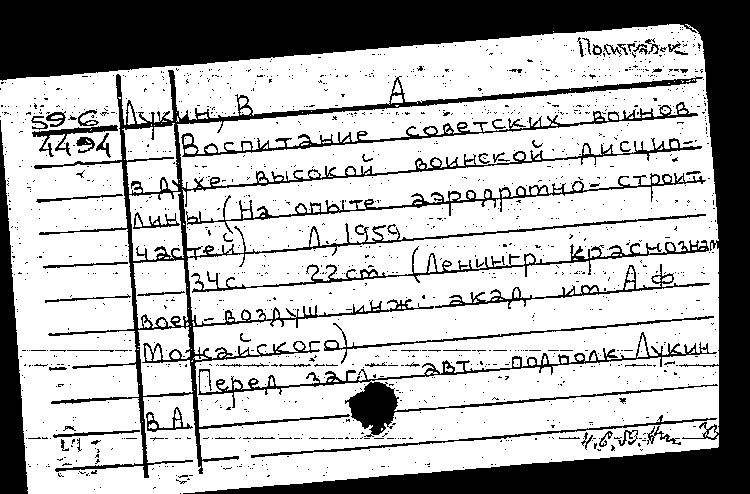 59-6 Лукин, В А
4494 Воспитание советских воинов
в духе высокой воинской дисцип-
лины (На опыте аэродромно-строит
частей). Л., 1959.
34с. 22 cm. (Ленингр. краснознам
воен-воздуш. инж. акад. им. А.Ф.
Можайского).
Перед загл. авт.: подполк. Лукин
В.А.